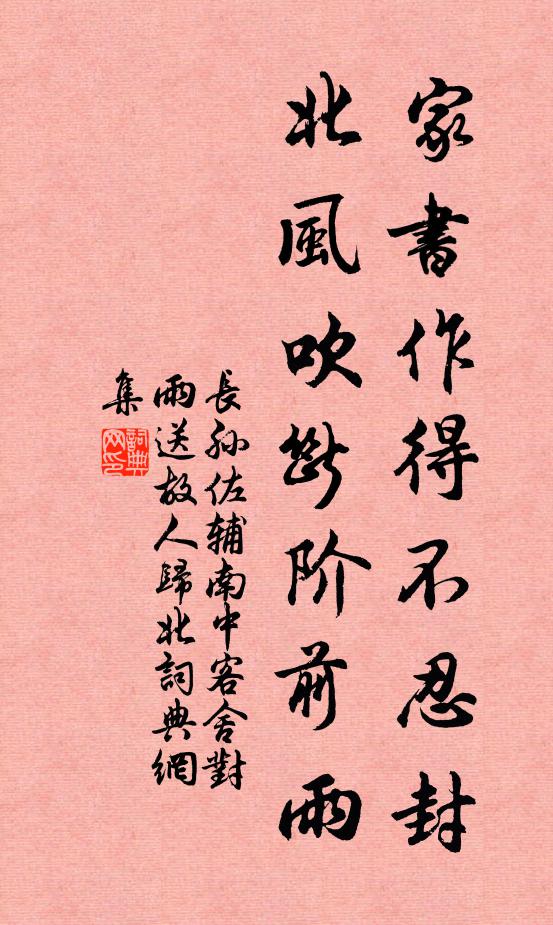 家書作得不忍封
北風吹斷阶前雨
長孙佐輔南中客舍對
雨送故人歸北詞典網
集
詞典
网印